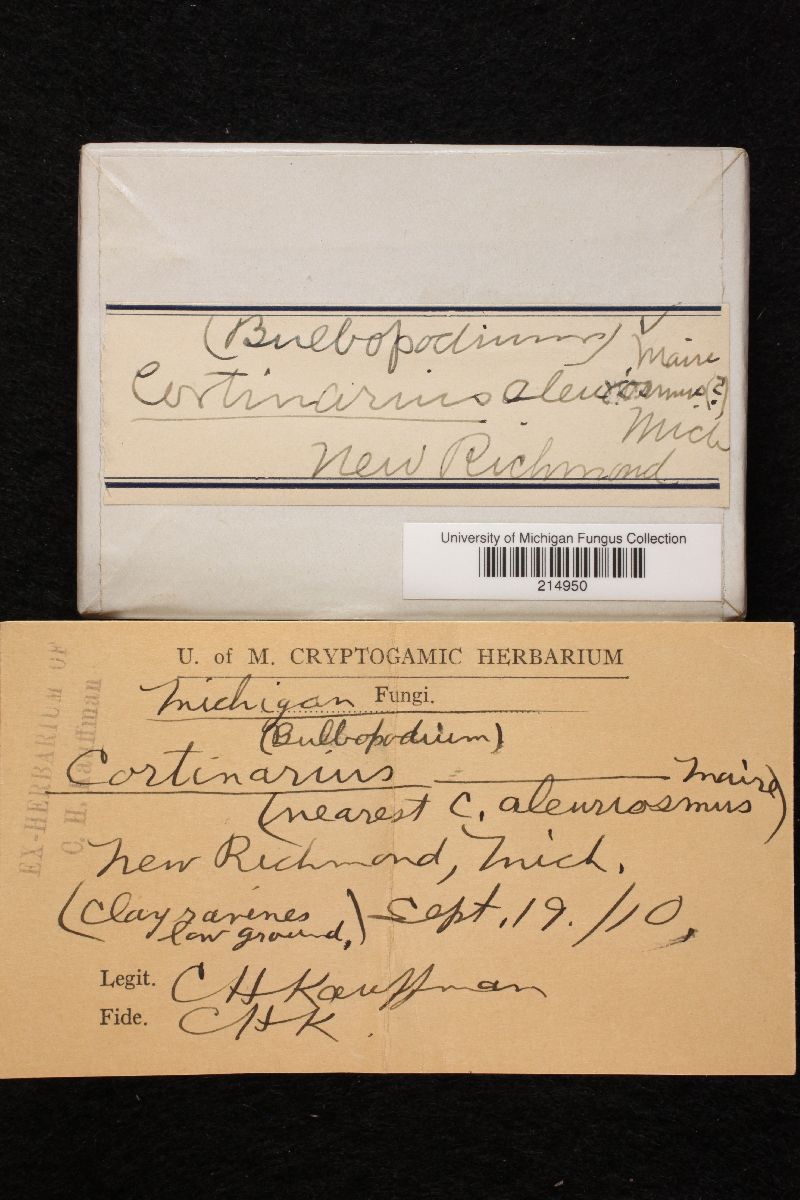 (Bulbopodium)
Maire
Cortinarius aleuriosmus (?)
Mich
New Richmond
University of Michigan Fungus Collection
214950
EX-HERBARIUM OF
C. H. Kauffman
U. of M. CRYPTOGAMIC HERBARIUM
Michigan Fungi.
(Bulbopodium)
Cortinarius Maire
(nearest C. aleuriosmus)
New Richmond, Mich.
(Clay ravines
low ground,) Sept. 19. /10,
Legit. CHKauffman
Fide. CHK.